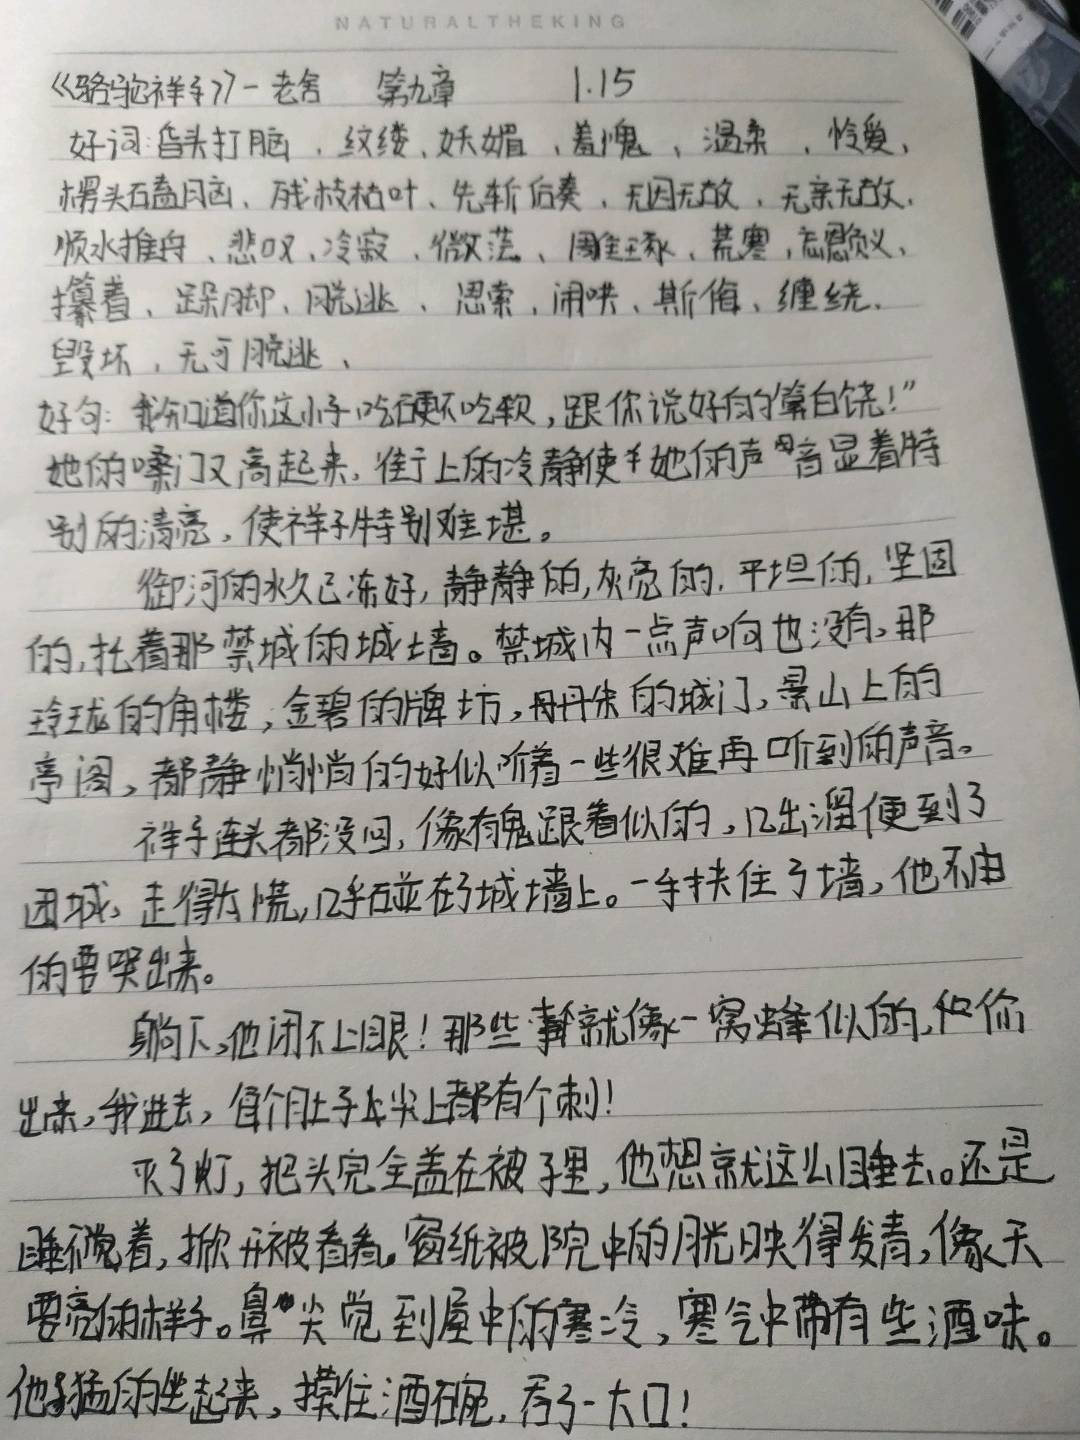 NATURALTHEKING
《骆驼祥子》-老舍 第九章 1.15
好词:昏头打脑、纹缕、妖媚、羞愧、温柔、怜爱、
楞头磕脑、残枝枯叶、先斩后奏、无因无故、无亲无故、
顺水推舟、悲叹、冷寂、微茫、雕琢、荒寒、忘恩负义、
攥着、跺脚、脱逃、思索、闹哄、斯侮、缠绕、
毁坏、无可脱逃、
好句:我知道你这小子吃硬不吃软,跟你说好的算白饶!”
她的嗓门又高起来,街上的冷静使她的声音显着特
别的清亮,使祥子特别难堪。
御河的水久已冻好,静静的,灰亮的,平坦的,坚固
的,托着那禁城的城墙。禁城内一点声响也没有,那
玲珑的角楼,金碧的牌坊,丹朱的城门,景山上的
亭阁,都静悄悄的好似听着一些很难再听到的声音。
祥子连头都没回,像有鬼跟着似的,几出溜便到了
团城,走得太慌,几乎碰在了城墙上。一手扶住了墙,他不由
的要哭出来。
躺下,他闭不上眼!那些事就像一窝蜂似的,你
出来,我进去,每个肚子上尖上都有个刺!
灭了灯,把头完全盖在被子里,他想就这么睡去。还是
睡不着,掀开被看看。窗纸被院中的月光映得发青,像天
要亮的样子。鼻尖觉到屋中的寒冷,寒气中带有些酒味。
他猛的坐起来,摸住酒碗,吞了一大口!